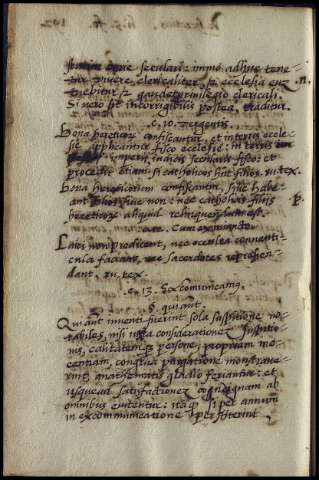 curie seculari: immo adhuc tene-
tur vivere clericaliter, et ecclesia eum
et gaudet privilegio clericali. n.
Si vero sit incorrigibilis postea, traditur.
c. 10. Vergentis.
Bona hereticorum confiscantur: et in terris eccle-
sie applicantur fisco ecclesie: in terris
imperii, iudicis secularis fisco: et
procedit etiam si catholicos hnt filios. ru. tex.
Bona hereticorum confiscantur, sive habe-
ant filios sive non: nec catholicis filiis
hereticorum aliquid relinquendum est. p.
Cum ex iniuncto.
Laici non predicent, nec occulta conventi-
cula faciant, nec sacerdotes reprehen-
dant. ru. tex.
c. 13. Excommunicamus,
§. qui aut.
Qui aut inventi fuerint sola suspitione no-
tabiles, nisi iuxta considerationem suspitio-
nis, qualitatemque persone, propriam ino-
centiam, congrua purgatione monstrave-
rint, anathematis gladio feriantur: et
usque ad satisfactionem condignam ab
omnibus evitentur: ita quod si per annum
in excommunicatione perstiterint,